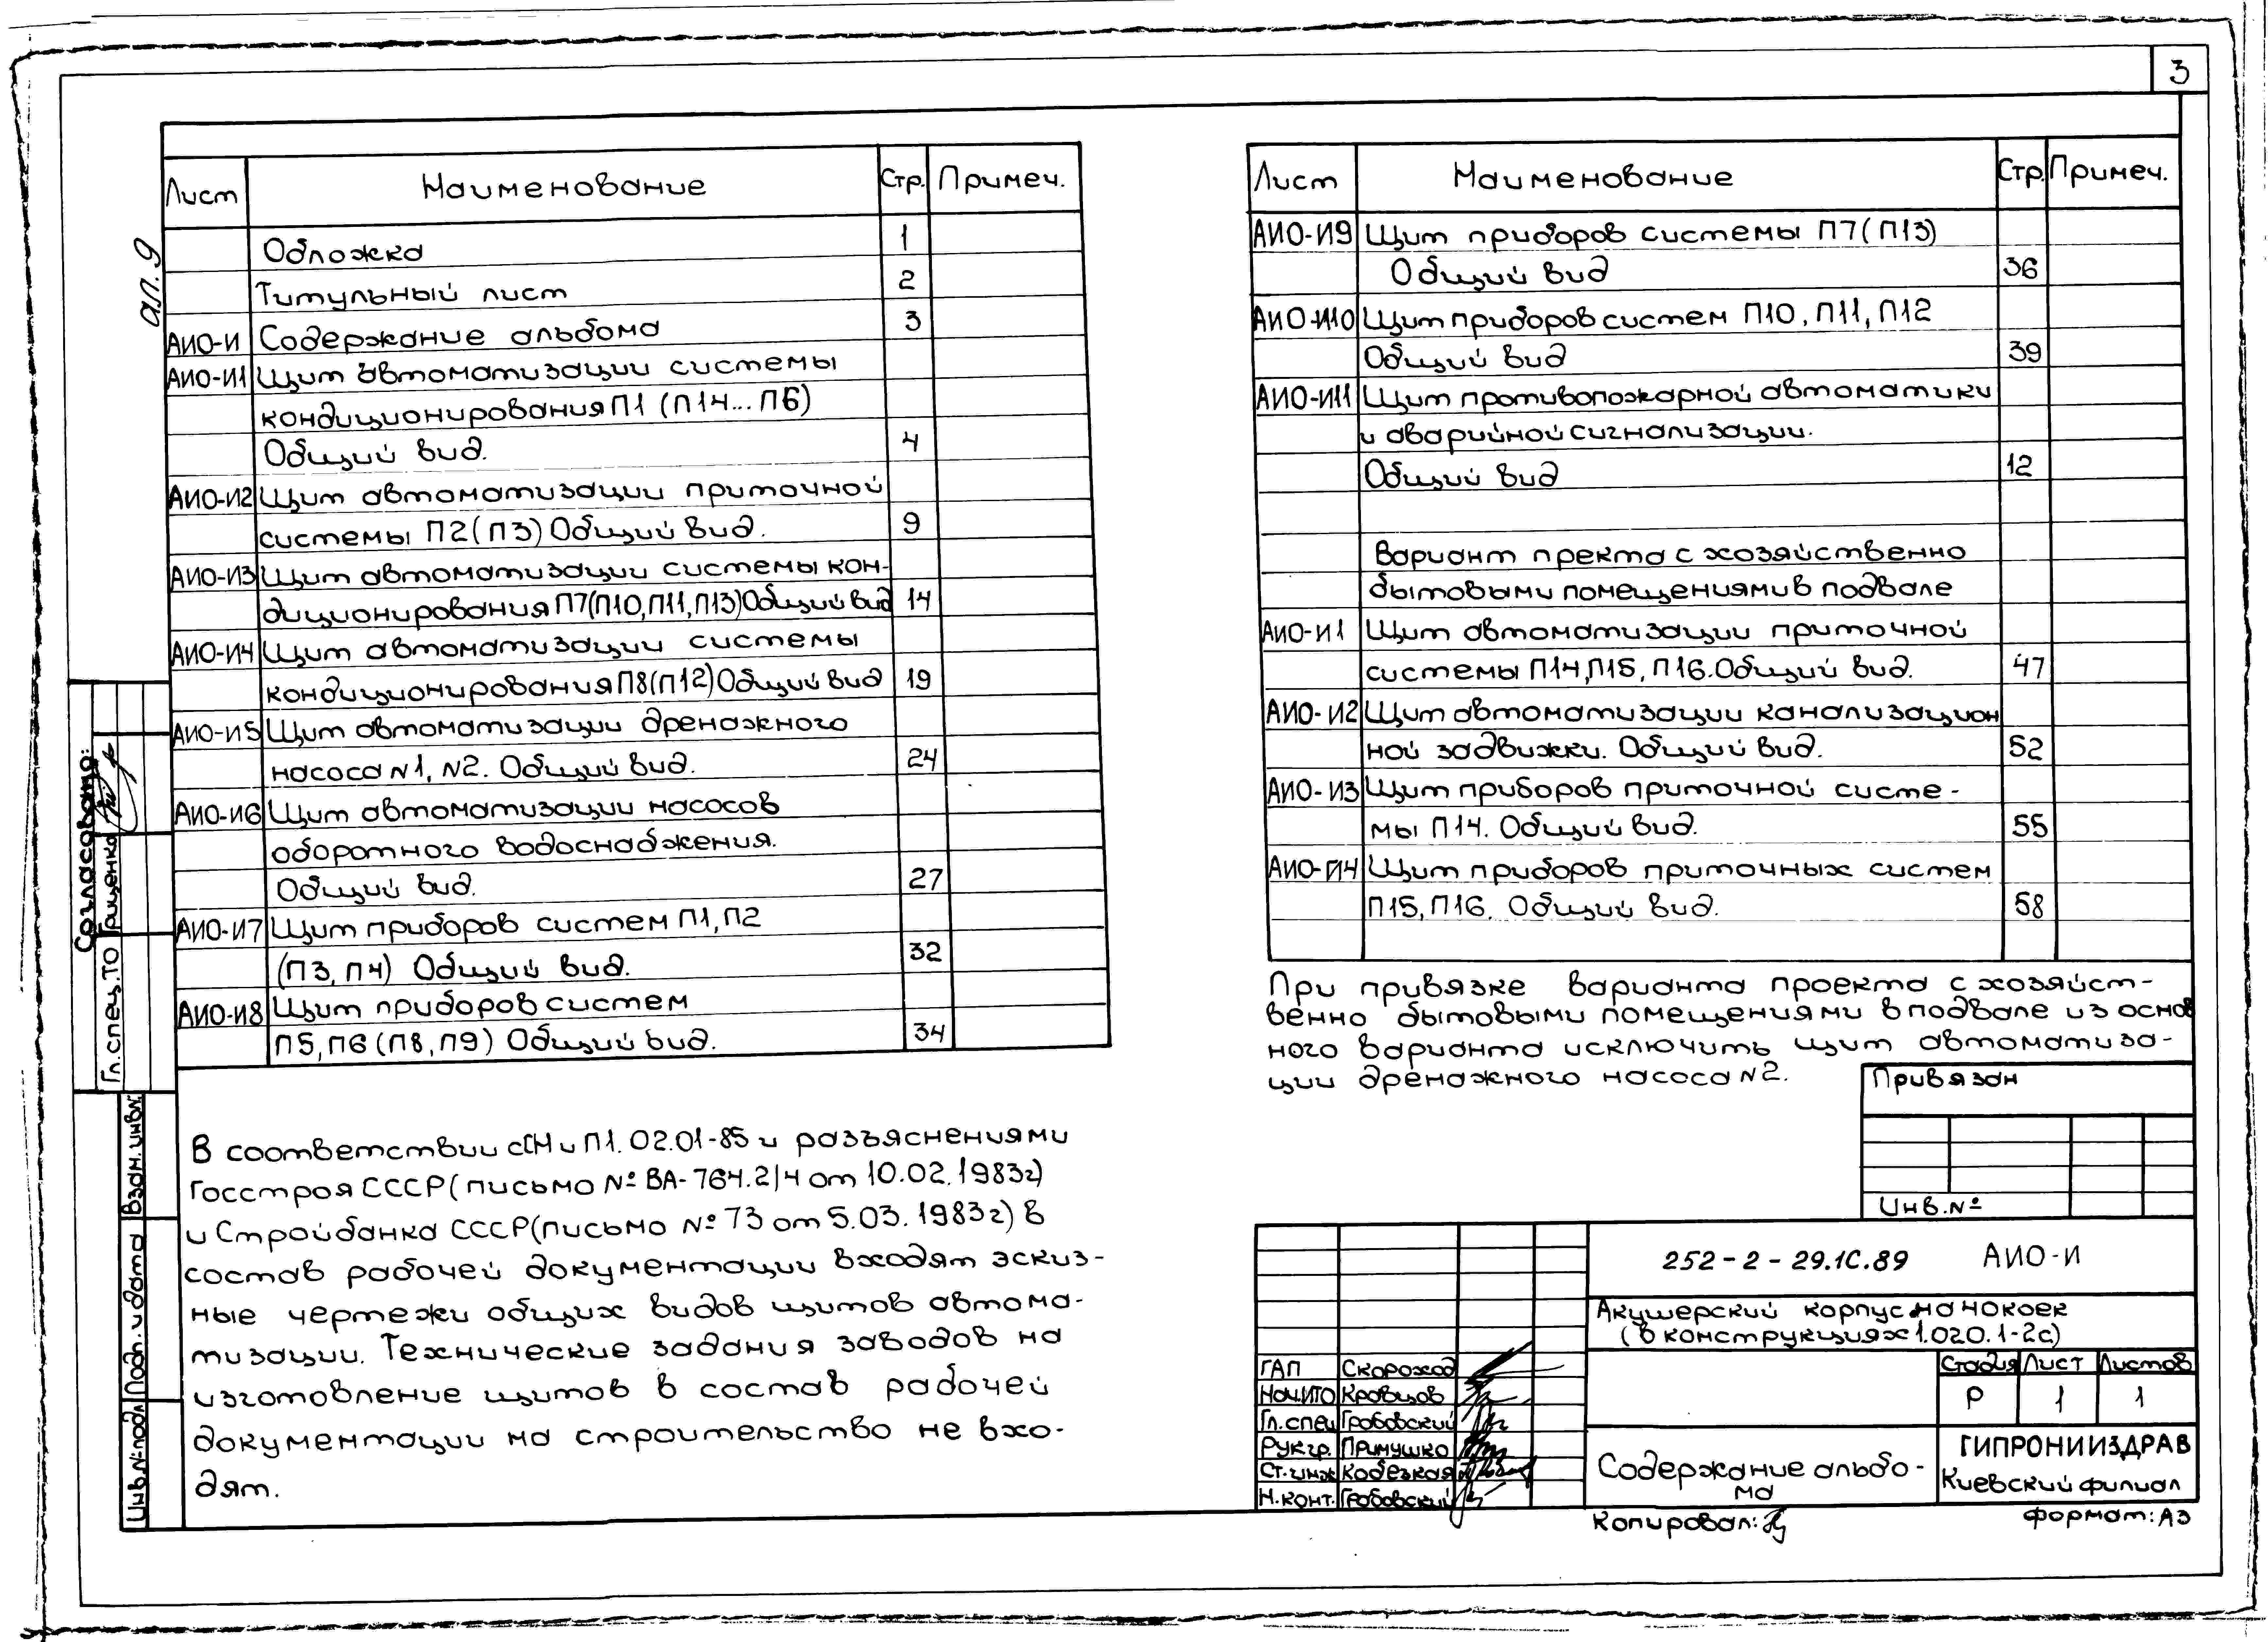 3
ал. 9
Лист Наименование Стр. Примеч.
Обложка 1
Титульный лист 2
АИО-И Содержание альбома 3
АИО-И1 Щит автоматизации системы
кондиционирования П1 (П14...П6)
Общий вид. 4
АИО-И2 Щит автоматизации приточной
системы П2(П3) Общий вид. 9
АИО-И3 Щит автоматизации системы кон-
диционирования П7(П10,П11,П13)Общий вид 14
АИО-И4 Щит автоматизации системы
кондиционирования П8(П12)Общий вид 19
АИО-И5 Щит автоматизации дренажного
насоса N1, N2. Общий вид. 24
АИО-И6 Щит автоматизации насосов
оборотного водоснабжения.
Общий вид. 27
АИО-И7 Щит приборов систем П1, П2
(П3, П4) Общий вид. 32
АИО-И8 Щит приборов систем
П5, П6 (П8, П9) Общий вид. 34
В соответствии сСНиП1.02.01-85 и разъяснениями
Госстроя СССР(письмо № ВА-764.2/4 от 10.02.1983г)
и Стройбанка СССР(письмо № 73 от 5.03.1983г) в
состав рабочей документации входят эскиз-
ные чертежи общих видов щитов автома-
тизации. Технические задания заводов на
изготовление щитов в состав рабочей
документации на строительство не вхо-
дят.
Лист Наименование Стр. Примеч.
АИО-И9 Щит приборов системы П7(П13)
Общий вид 36
АИО-И10 Щит приборов систем П10, П11, П12
Общий вид 39
АИО-И11 Щит противопожарной автоматики
и аварийной сигнализации.
Общий вид 12
Вариант пректа с хозяйственно
бытовыми помещениями в подвале
АИО-И1 Щит автоматизации приточной
системы П14,П15, П16.Общий вид. 47
АИО-И2 Щит автоматизации канализацион
ной задвижки. Общий вид. 52
АИО-И3 Щит приборов приточной систе-
мы П14. Общий вид. 55
АИО-И4 Щит приборов приточных систем
П15, П16. Общий вид. 58
При привязке варианта проекта с хозяйст-
венно бытовыми помещениями в подвале из основ
ного варианта исключить щит автоматиза-
ции дренажного насоса N2.
Привязан
Инв.№
252-2-29.1С.89 АИО-И
Акушерский корпус на 40 коек
(в конструкциях 1.020.1-2с)
Стадия Лист Листов
Р 1 1
ГАП Скороход
Нач.ИТО Кравцов
Гл.спец Гробовский
Рук.гр. Примушко
Ст.инж Кобезкая
Н.конт. Гробовский
Содержание альбо-
ма
ГИПРОНИИЗДРАВ
Киевский филиал
Копировал:
Формат: А3
Согласовано:
Гл.спец.ТО Грищенко
Взам.инв.№
Подп. и дата
Инв.№подл